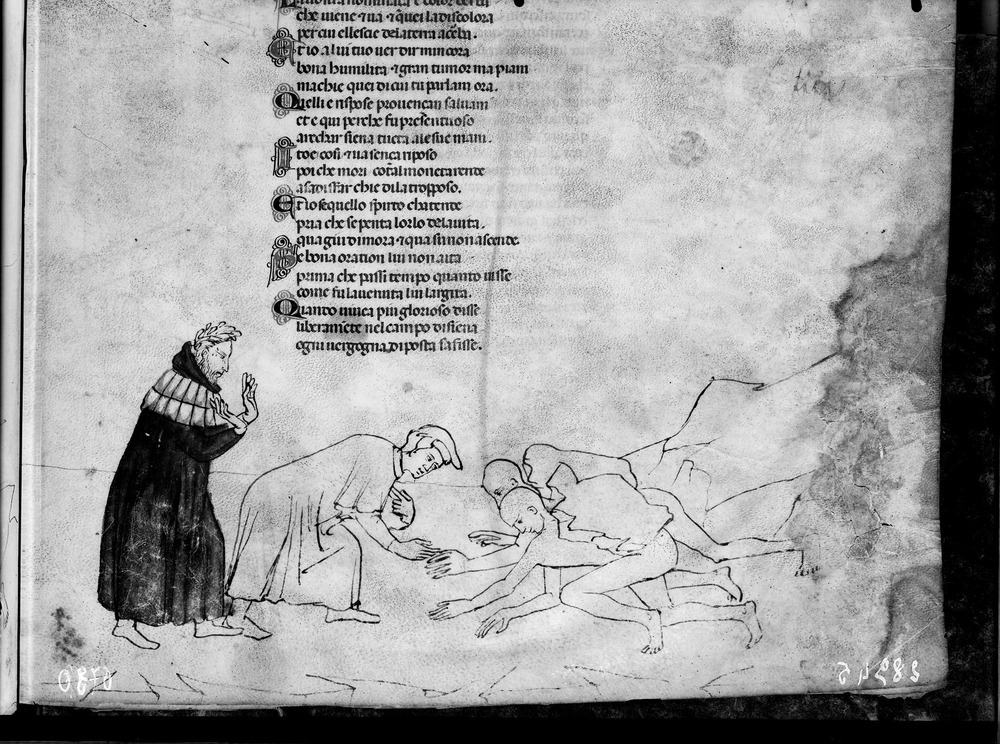 che uiene ⁊ ua ⁊ q̃uei la discolora
per cui ellesce dela terra acerba.
Et io a lui tuo uer dir mincora
bona humilita ⁊ gran tumor ma piani
ma chie quei di cui tu parlaui ora.
Quelli e rispose prouençan saluani
et e qui perche fu presentuoso
arechar siena tucta ale sue mani.
Ito e cosi ⁊ ua sença riposo
poi che mori cotal moneta rende
a sadisfar chie di la troposso.
Et io se quello spirito chatende
pria che se penta lorlo dela uita.
qua giu dimora ⁊ qua su non ascende.
Se bona oration lui non aita
prima che passi tempo quanto uisse
come fu la uenuta lui largita.
Quando uiuea piu glorioso disse
liberamẽte nel campo di siena
ogni uergogna diposta safisse.